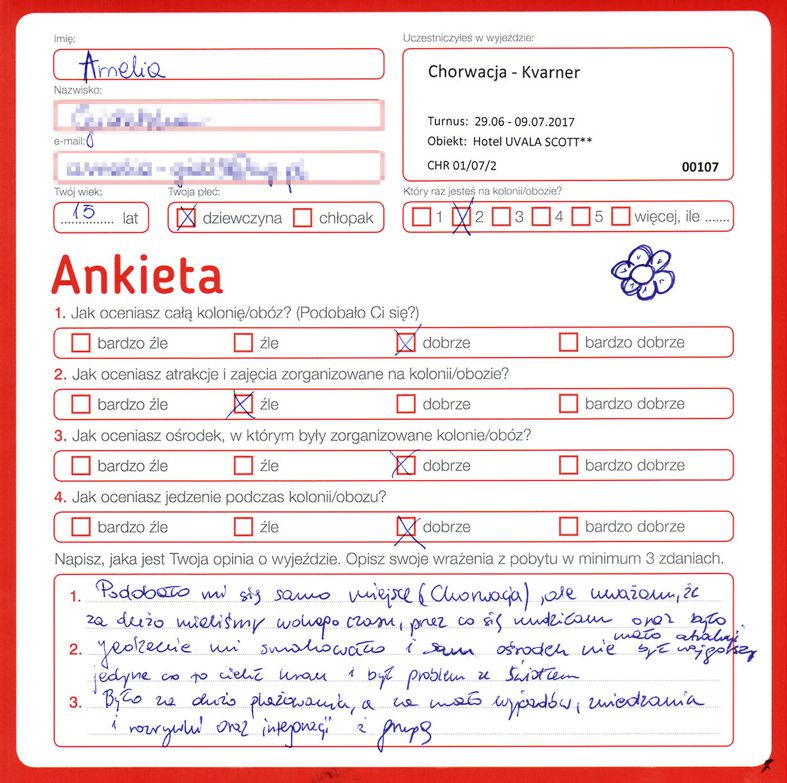 Imię:
Amelia
Nazwisko:
e-mail:
Twój wiek:
15 lat
Twoja płeć:
dziewczyna chłopak
Uczestniczyłeś w wyjeździe:
Chorwacja - Kvarner
Turnus: 29.06 - 09.07.2017
Obiekt: Hotel UVALA SCOTT**
CHR 01/07/2 00107
Który raz jesteś na kolonii/obozie?
1 2 3 4 5 więcej, ile .......
Ankieta
1. Jak oceniasz całą kolonię/obóz? (Podobało Ci się?)
bardzo źle źle dobrze bardzo dobrze
2. Jak oceniasz atrakcje i zajęcia zorganizowane na kolonii/obozie?
bardzo źle źle dobrze bardzo dobrze
3. Jak oceniasz ośrodek, w którym były zorganizowane kolonie/obóz?
bardzo źle źle dobrze bardzo dobrze
4. Jak oceniasz jedzenie podczas kolonii/obozu?
bardzo źle źle dobrze bardzo dobrze
Napisz, jaka jest Twoja opinia o wyjeździe. Opisz swoje wrażenia z pobytu w minimum 3 zdaniach.
1. Podobało mi się samo miejsce (Chorwacja), ale uważam, że
za dużo mieliśmy wolnego czasu, przez co się nudziłam oraz było
mało atrakcji
2. jedzenie mi smakowało i sam ośrodek nie był najgorszy
jedyne co to ciekł kran i był problem ze światłem
3. Było za dużo plażowania, a za mało wyjazdów, zwiedzania
i rozrywki oraz integracji z grupą